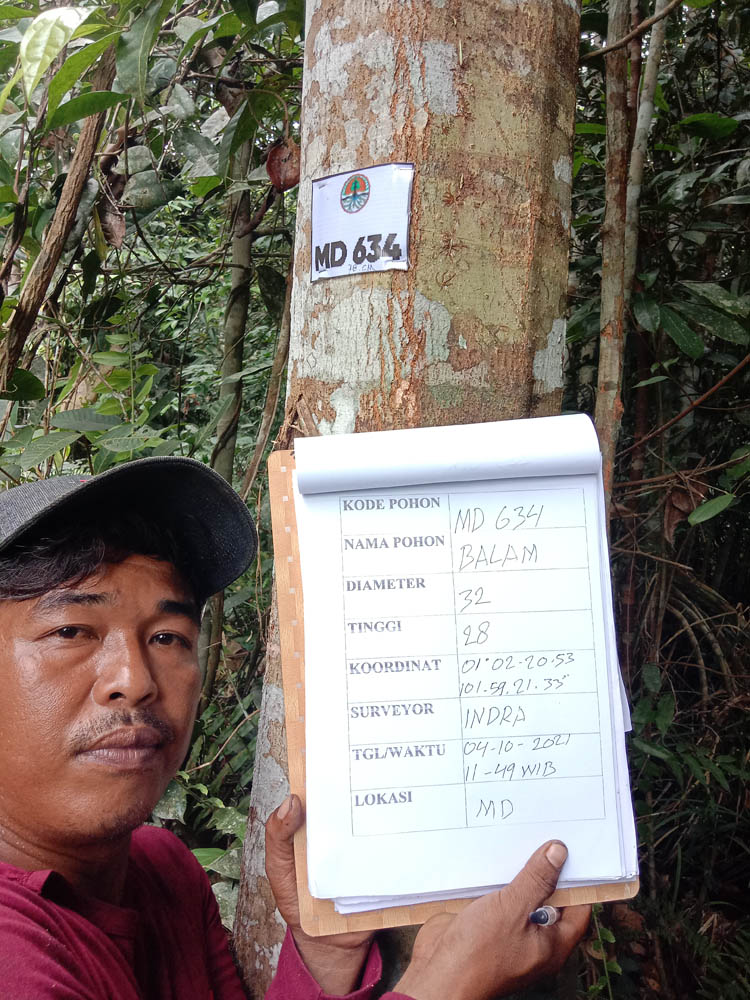 MD 634
KODE POHON MD 634
NAMA POHON BALAM
DIAMETER 32
TINGGI 28
KOORDINAT 01°02-20.53
101.59.21.33"
SURVEYOR INDRA
TGL/WAKTU 04-10-2021
11-49 WIB
LOKASI MD